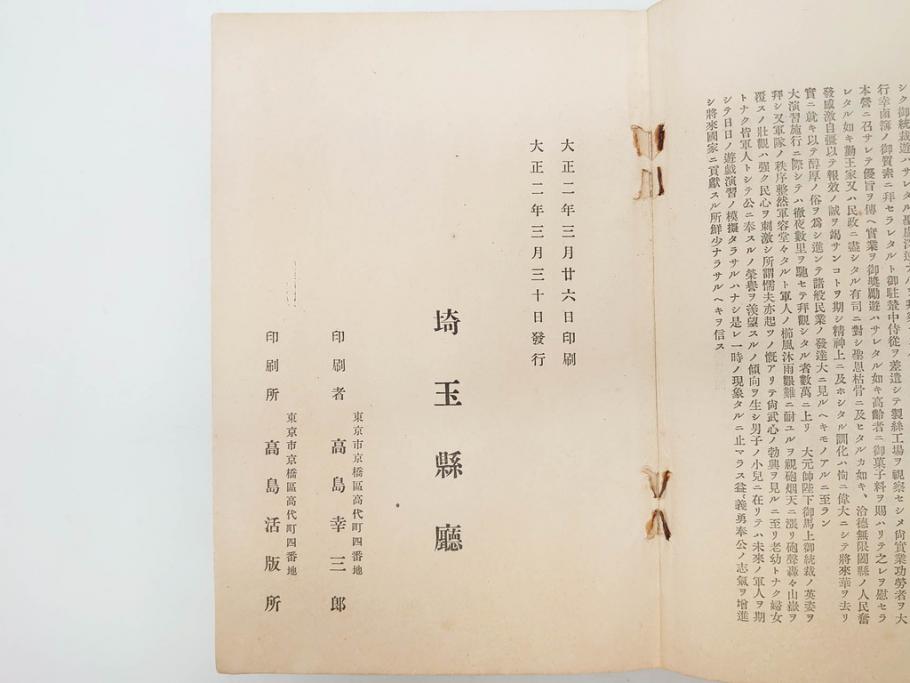 行幸鹵簿ノ御質素ニ拜セラレタルト御駐輦中侍從ヲ差遣シテ製絲工場ヲ視察セシメ尙實業功勞者ヲ大
本營ニ召サレテ優旨ヲ傳ヘ實業ヲ御奬勵遊ハサレタル如キ高齡者ニ御菓子料ヲ賜ハリテ之レヲ慰セラ
レタル如キ勤王家又ハ民政ニ盡シタル有司ニ對シ聖恩枯骨ニ及ヒタルカ如キ、洽德無限闔縣ノ人民奮
發感激自彊以テ報效ノ誠ヲ竭サンコトヲ期シ精神上ニ及ホシタル訓化ハ洵ニ偉大ニシテ將來華ヲ去リ
實ニ就キ以テ醇厚ノ俗ヲ爲シ進ンテ諸般民業ノ發達大ニ見ルヘキモノアルニ至ラン
大演習施行ニ際シテハ徹夜數里ヲ馳セテ拜觀シタル者數萬ニ上リ 大元帥陛下御馬上御統裁ノ英姿ヲ
拜シ又軍隊ノ秩序整然軍容堂々タルト軍人ノ櫛風沐雨艱難ニ耐ユルヲ視砲烟天ニ漲リ砲聲轟々山嶽ヲ
覆スノ壯觀ハ强ク民心ヲ刺激シ所謂懦夫亦起ツノ慨アリテ尙武心ノ勃興ヲ見ルニ至リ老幼トナク婦女
トナク皆軍人トシテ公ニ奉スルノ榮譽ヲ羨望スルノ傾向ヲ生シ男子ノ小兒ニ在リテハ未來ノ軍人ヲ期
シテ日日ノ遊戲演習ノ模擬タラサルハナシ是レ一時ノ現象タルニ止マラス益〻義勇奉公ノ志氣ヲ增進
シ將來國家ニ貢獻スル所鮮少ナラサルヘキヲ信ス
大正二年三月廿六日印刷
大正二年三月三十日發行
埼玉縣廳
東京市京橋區高代町四番地
印刷者 高島幸三郎
東京市京橋區高代町四番地
印刷所 高島活版所